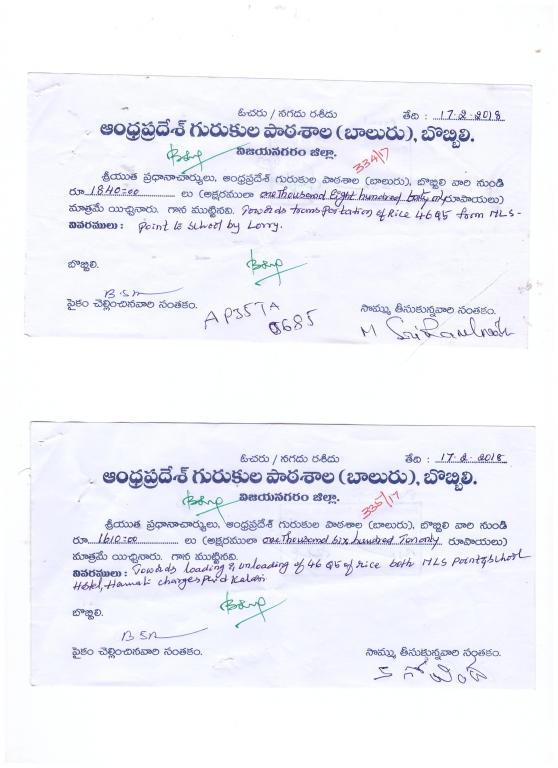 ఓచరు / నగదు రశీదు తేది : 17-2-2018
ఆంధ్రప్రదేశ్ గురుకుల పాఠశాల (బాలురు), బొబ్బిలి.
విజయనగరం జిల్లా. 334/17
శ్రీయుత ప్రధానాచార్యులు, ఆంధ్రప్రదేశ్ గురుకుల పాఠశాల (బాలురు), బొబ్బిలి వారి నుండి
రూ 1840=00 లు (అక్షరములా one Thousand Eight hundred only రూపాయలు)
మాత్రమే యిచ్చినారు. గాన ముట్టినవి. Towards transportation of Rice 46 QS form MLS-
వివరములు : point to school by Lorry.
బొబ్బిలి.
పైకం చెల్లించినవారి సంతకం. సొమ్ము తీసుకున్నవారి సంతకం.
AP35TA
5685
ఓచరు / నగదు రశీదు తేది : 17-2-2018
ఆంధ్రప్రదేశ్ గురుకుల పాఠశాల (బాలురు), బొబ్బిలి.
విజయనగరం జిల్లా. 335/17
శ్రీయుత ప్రధానాచార్యులు, ఆంధ్రప్రదేశ్ గురుకుల పాఠశాల (బాలురు), బొబ్బిలి వారి నుండి
రూ. 1610=00 లు (అక్షరములా one Thousand six hundred Ten only రూపాయలు)
మాత్రమే యిచ్చినారు. గాన ముట్టినవి.
వివరములు : Towards loading & unloading of 46 QS of rice both MLS point & school
Hostel, Hamali charges paid
బొబ్బిలి.
పైకం చెల్లించినవారి సంతకం. సొమ్ము తీసుకున్నవారి సంతకం.